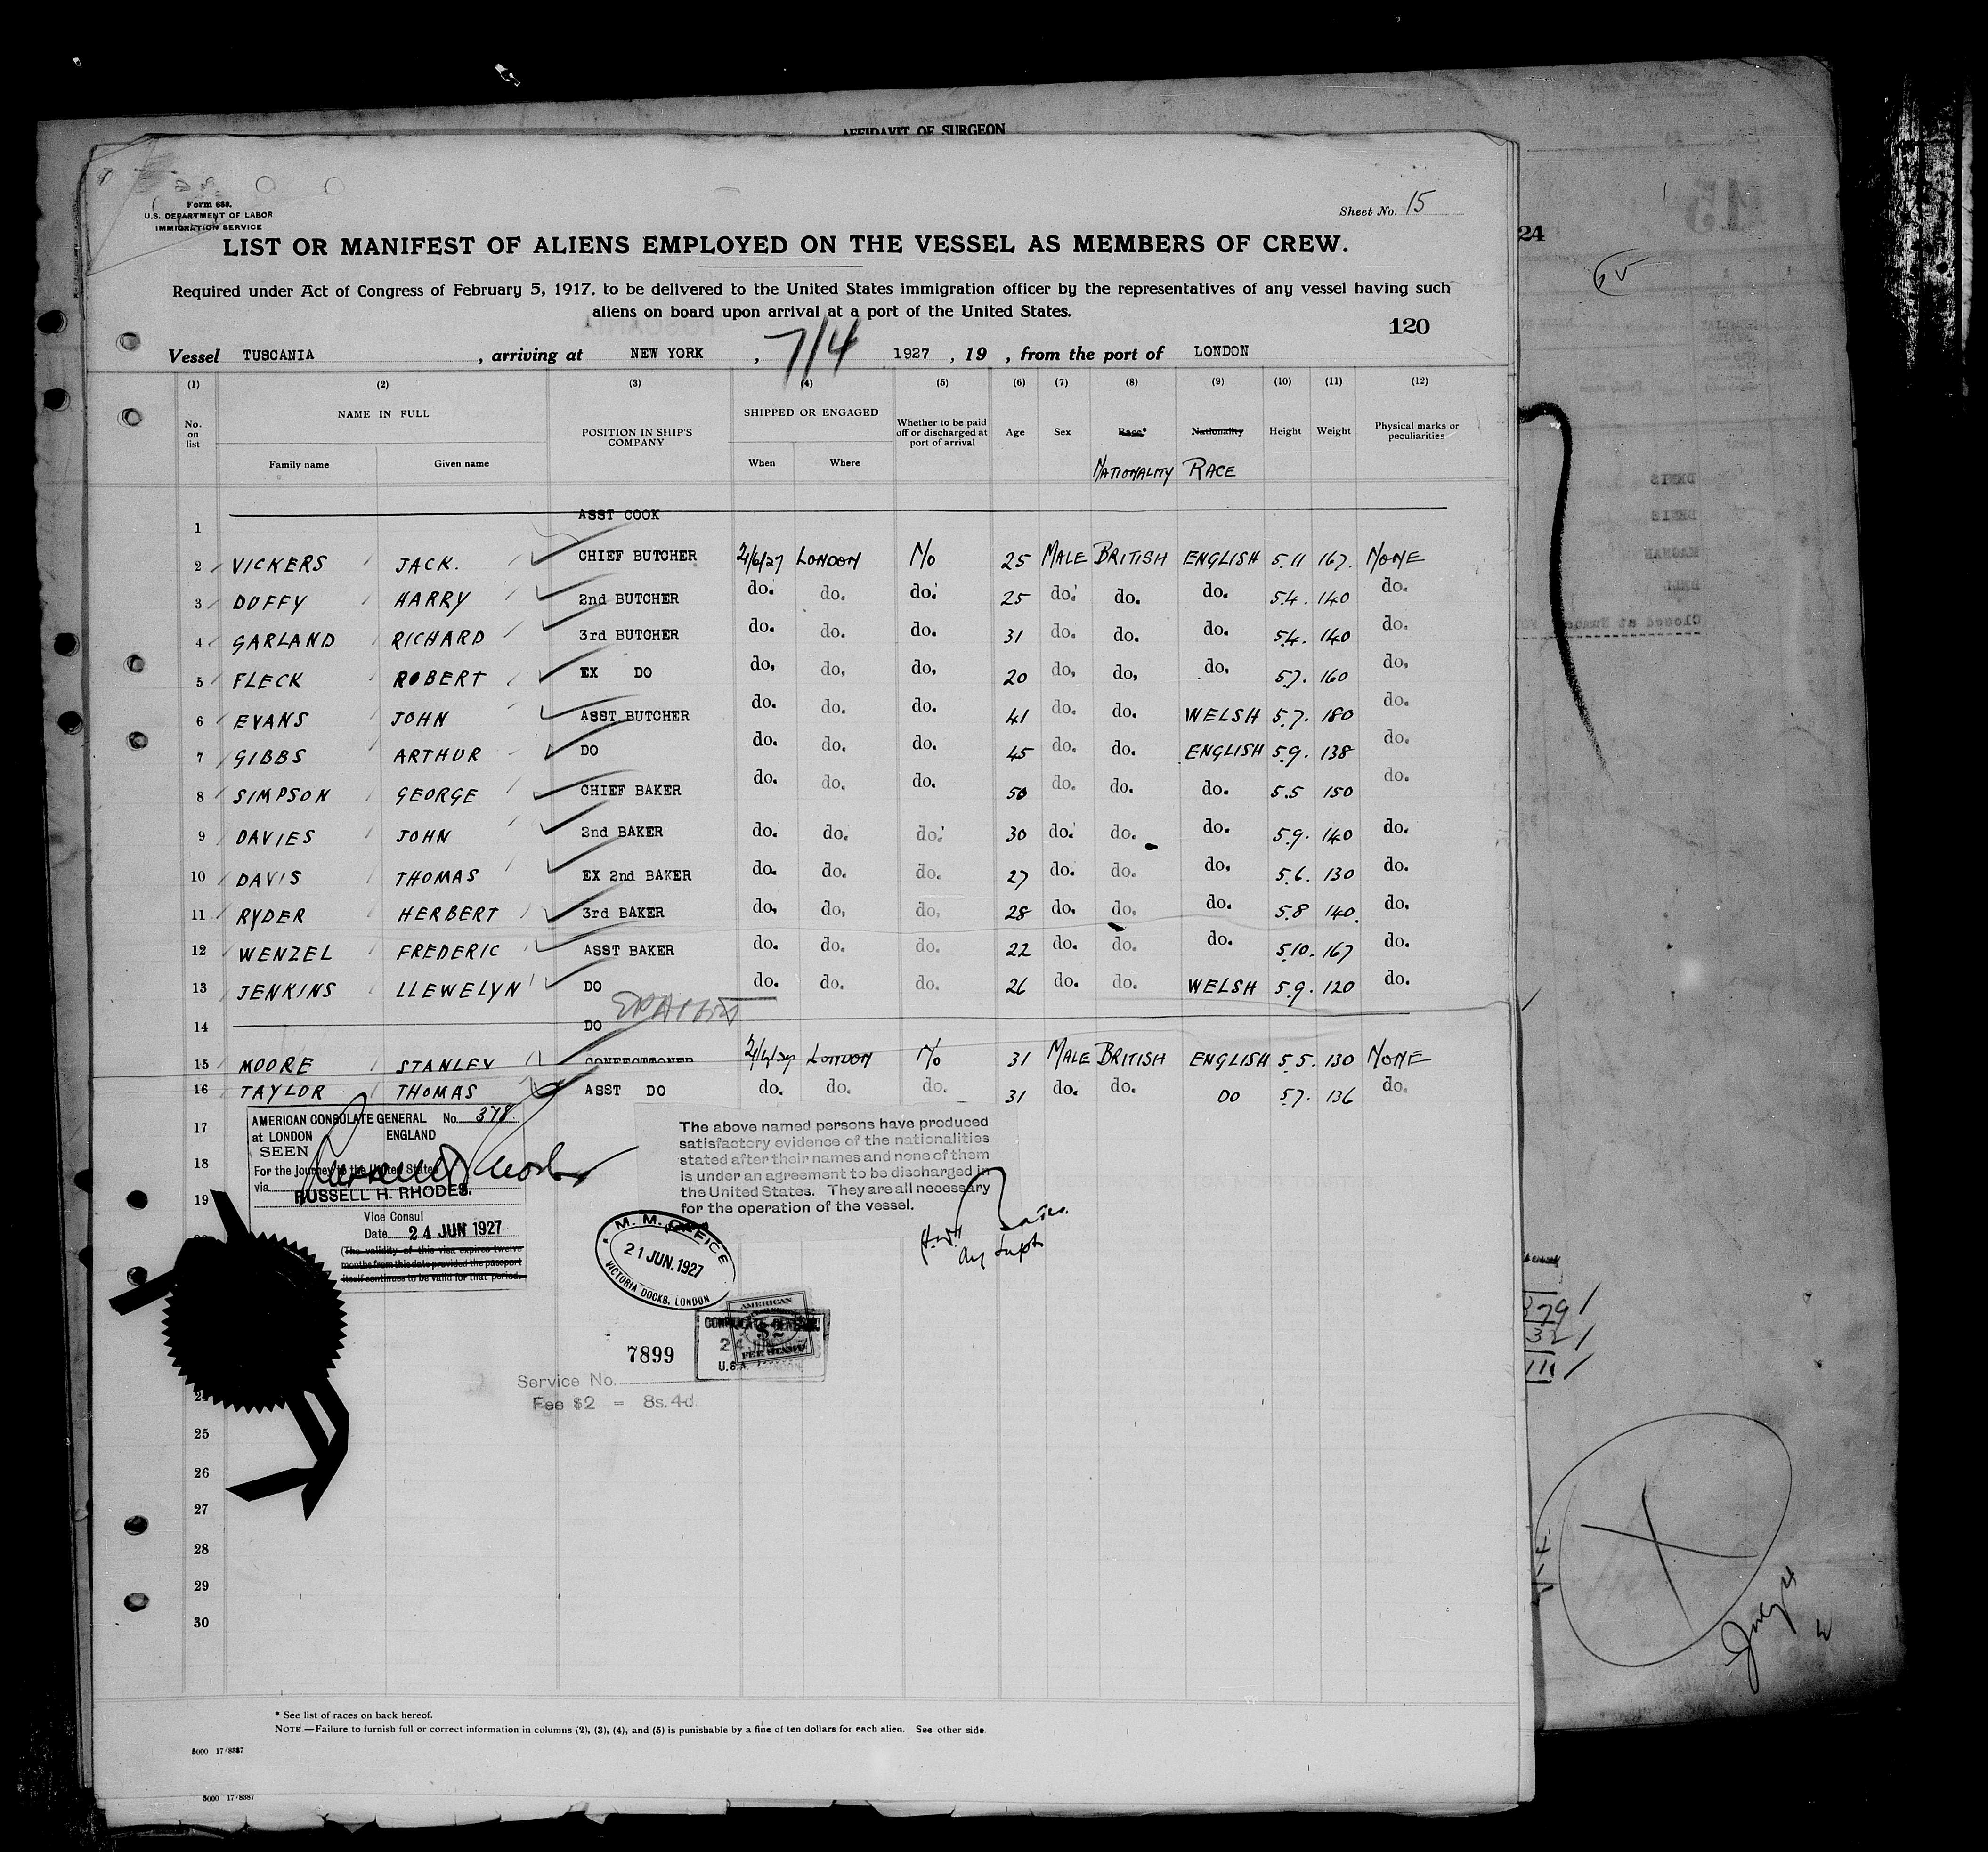 AFFIDAVIT OF SURGEON
Form 689.
U.S. DEPARTMENT OF LABOR
IMMIGRATION SERVICE
Sheet No. 15
LIST OR MANIFEST OF ALIENS EMPLOYED ON THE VESSEL AS MEMBERS OF CREW.
Required under Act of Congress of February 5, 1917, to be delivered to the United States immigration officer by the representatives of any vessel having such
aliens on board upon arrival at a port of the United States.
120
Vessel TUSCANIA , arriving at NEW YORK , 7/4 1927 , 19 , from the port of LONDON
(1) (2) (3) (4) (5) (6) (7) (8) (9) (10) (11) (12)
No. on list NAME IN FULL Family name Given name POSITION IN SHIP'S COMPANY SHIPPED OR ENGAGED When Where Whether to be paid off or discharged at port of arrival Age Sex Race* Nationality Height Weight Physical marks or peculiarities
NATIONALITY RACE
1 ASST COOK
2 VICKERS JACK. CHIEF BUTCHER 21/6/27 LONDON No 25 MALE BRITISH ENGLISH 5.11 167. NONE
3 DUFFY HARRY 2nd BUTCHER do. do. do. 25 do. do. do. 5.4. 140 do.
4 GARLAND RICHARD 3rd BUTCHER do. do. do. 31 do. do. do. 5.4. 140 do.
5 FLECK ROBERT EX DO do. do. do. 20 do. do. do. 5.7. 160 do.
6 EVANS JOHN ASST BUTCHER do. do. do. 41 do. do. WELSH 5.7. 180 do.
7 GIBBS ARTHUR DO do. do. do. 45 do. do. ENGLISH 5.9. 138 do.
8 SIMPSON GEORGE CHIEF BAKER do. do. do. 50 do. do. do. 5.5 150 do.
9 DAVIES JOHN 2nd BAKER do. do. do. 30 do. do. do. 5.9. 140 do.
10 DAVIS THOMAS EX 2nd BAKER do. do. do. 27 do. do. do. 5.6. 130 do.
11 RYDER HERBERT 3rd BAKER do. do. do. 28 do. do. do. 5.8 140. do.
12 WENZEL FREDERIC ASST BAKER do. do. do. 22 do. do. do. 5.10. 167 do.
13 JENKINS LLEWELYN DO do. do. do. 26 do. do. WELSH 5.9. 120 do.
14 DO
15 MOORE STANLEY CONFECTIONER 21/6/27 LONDON No 31 MALE BRITISH ENGLISH 5.5. 130 NONE
16 TAYLOR THOMAS ASST DO do. do. do. 31 do. do. DO 5.7. 136 do.
17
18
19
AMERICAN CONSULATE GENERAL No. 378
at LONDON ENGLAND
SEEN
For the Journey to the United States
via
RUSSELL H. RHODES.
Vice Consul
Date 24 JUN 1927
(The validity of this visa expires twelve
months from this date provided the passport
itself continues to be valid for that period.
The above named persons have produced
satisfactory evidence of the nationalities
stated after their names and none of them
is under an agreement to be discharged in
the United States. They are all necessary
for the operation of the vessel.
M. M. OFFICE
21 JUN. 1927
VICTORIA DOCKS, LONDON
AMERICAN
$2
FEE STAMP
CONSULATE GENERAL
24 JUN
U.S.A.
7899
Service No.
Fee $2 = 8s. 4d.
25
26
27
28
29
30
* See list of races on back hereof.
NOTE.—Failure to furnish full or correct information in columns (2), (3), (4), and (5) is punishable by a fine of ten dollars for each alien. See other side.
5000 17/8387
5000 17/8387
24
379
32
111
July 4